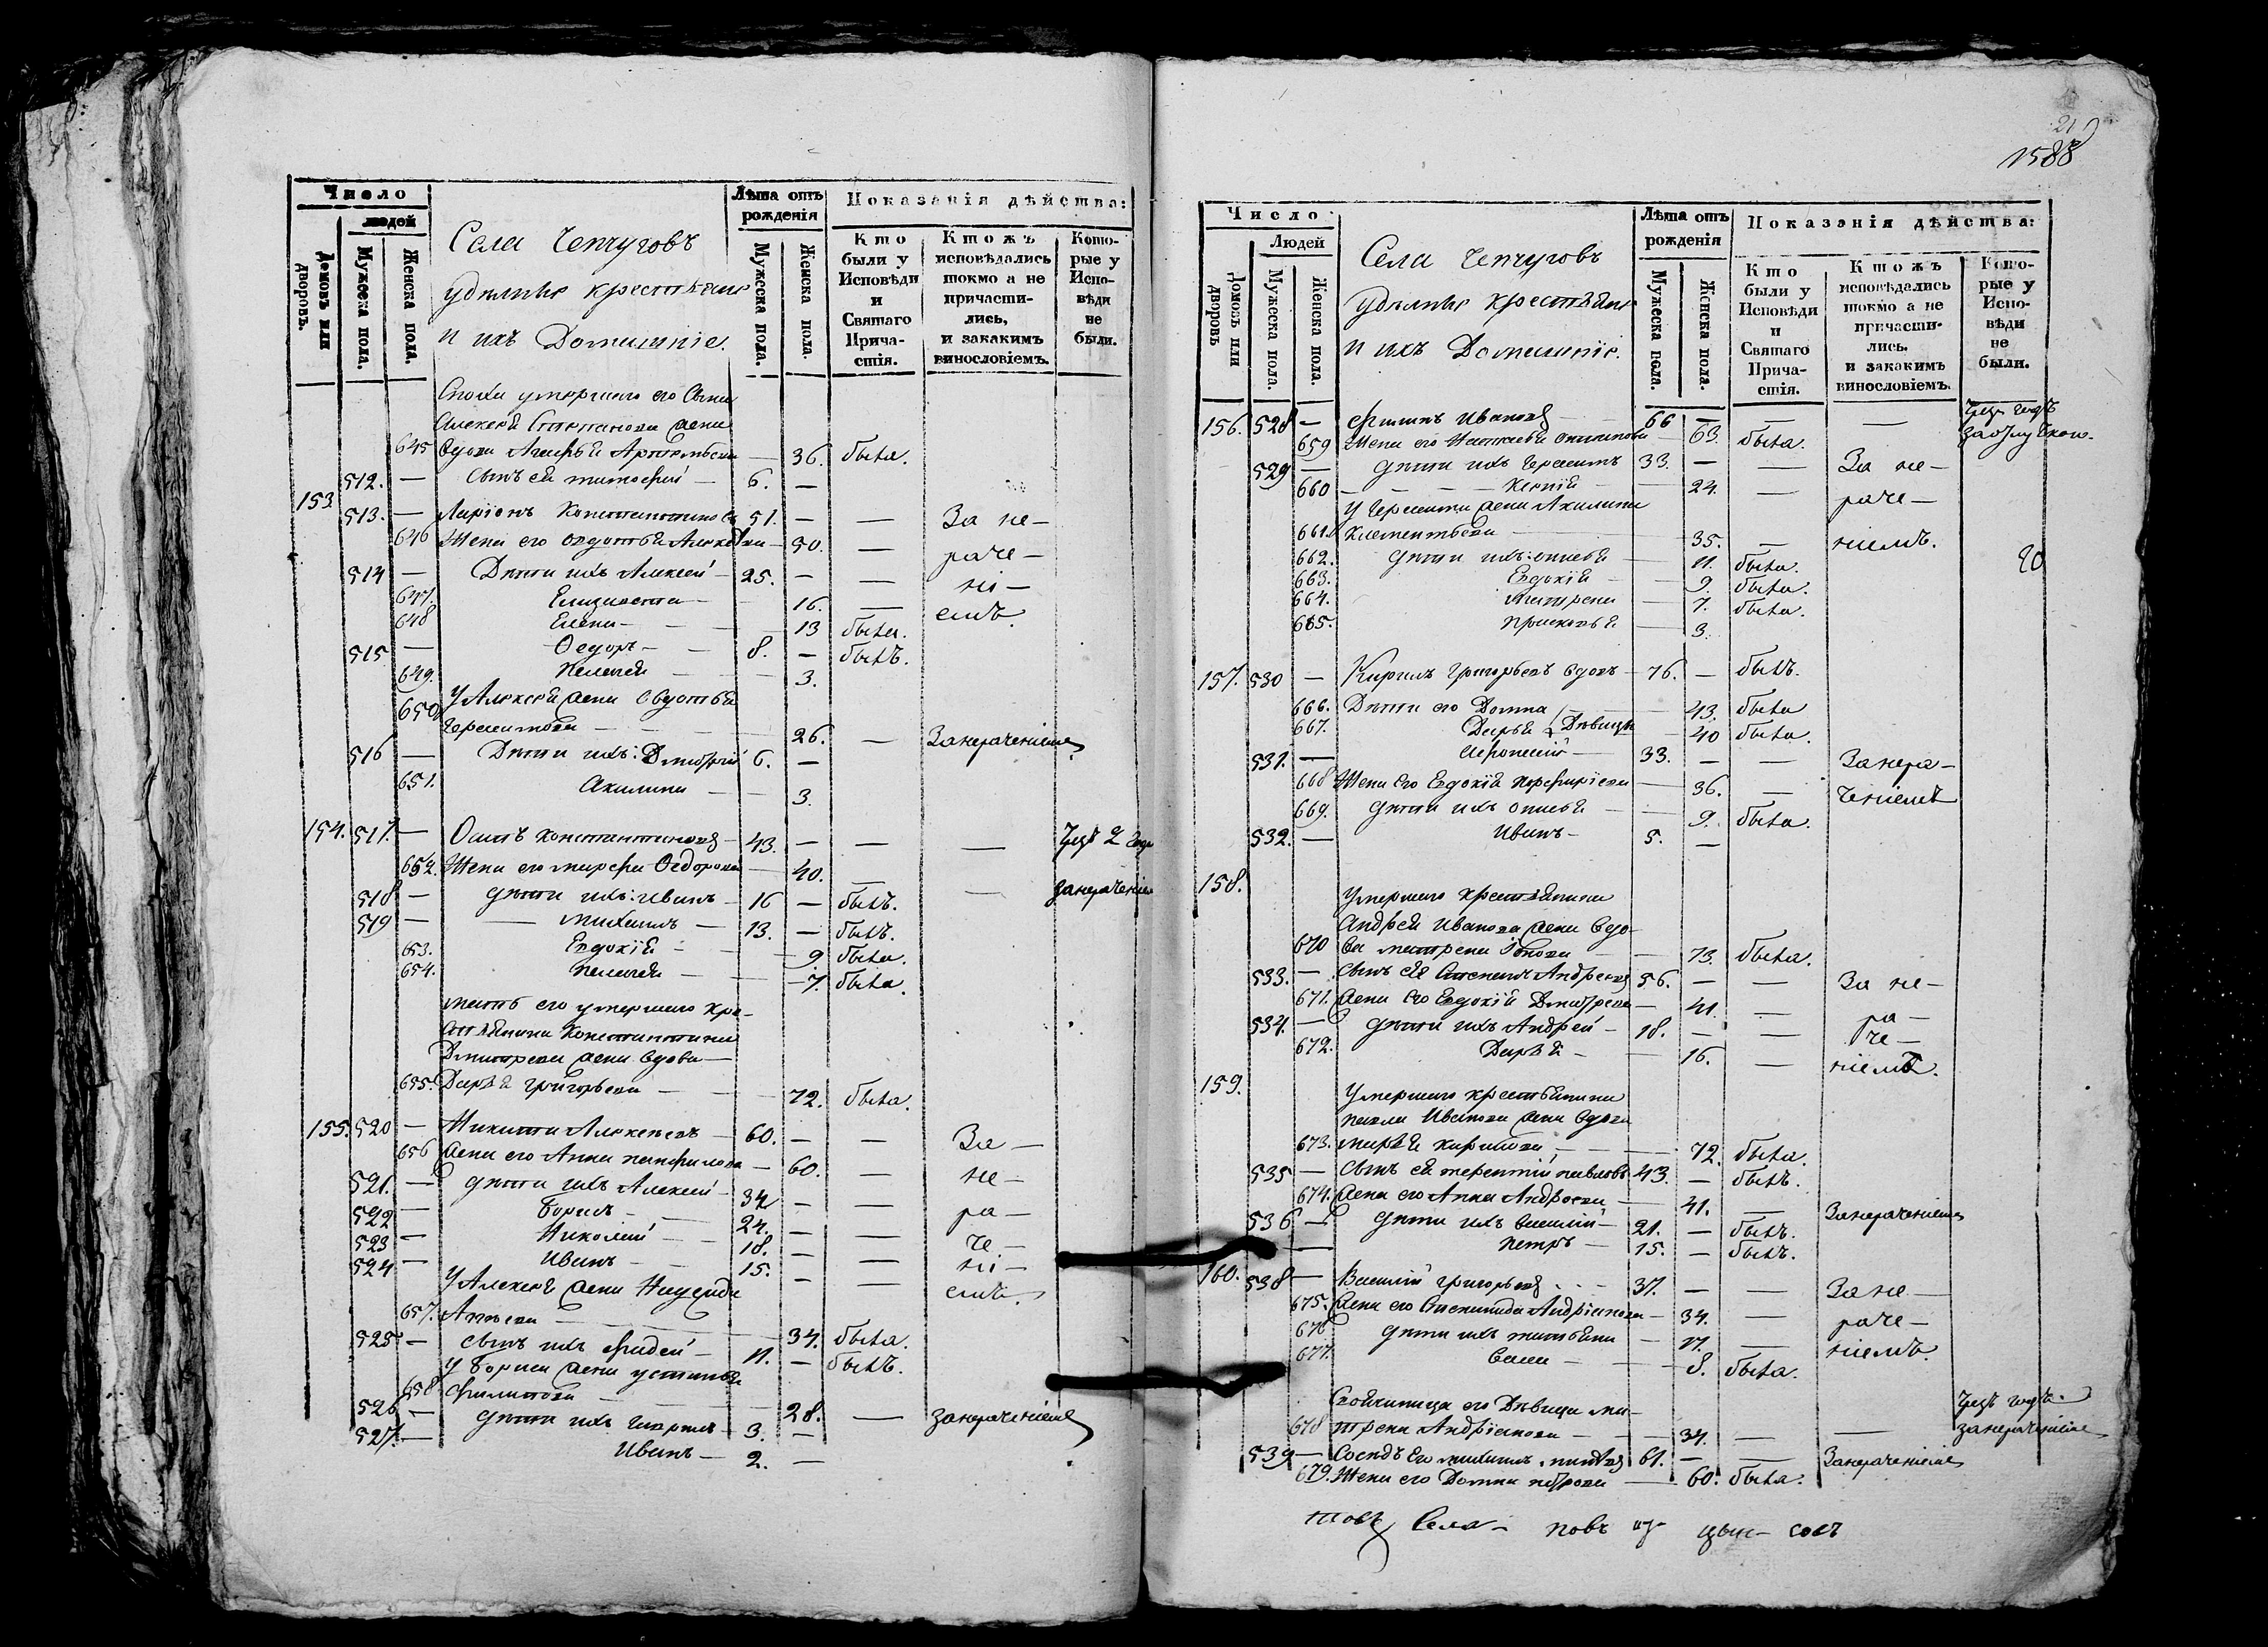 Число
людей
Домовъ или дворовъ.
Мужеска пола.
Женска пола.
Села Чепчуговъ
удѣльные крестьяне
и ихъ Домашніе.
Лѣта отъ рожденія
Мужеска пола.
Женска пола.
Показанія дѣйства:
Кто были у Исповѣди и Святаго Причастія.
Ктожъ исповѣдались токмо а не причастились, и закакимъ винословіемъ.
Которые у Исповѣди не были.
умершаго его Сына
Алексея Степанова жена
645 вдова Агафья — 36. была.
512. — Сынъ ея тимофей — 6. —
153 513. — Ларіонъ Константиновъ 51. — — За не-
646 Жена его Авдотья Алексѣева — 50. — раче-
514 — Дѣти ихъ Алексей — 25. — — ні-
647. Елизавета — 16. — емъ.
648 Елена — 13 была.
515 — Ѳедоръ — 8. — былъ.
649. Пелагея — 3.
650 У Алексея жена Авдотья
Герасимова — 26. — Занераченіемъ
516 — Дѣти ихъ: Дмитрій 6. —
651. Акилина — 3.
154. 517. — Осипъ Константиновъ — 43. — — — Чрезъ 2 года
652. Жена его марфа Ѳедорова — 40. — — занераченіемъ
518 — дѣти ихъ: иванъ — 16 — былъ.
519 — михаилъ — 13. — былъ.
653. Евдокія — 9 была.
654. Пелагея — 7. была.
мать его умершаго кре-
стьянина Константина
Дмитрева жена вдова —
655. Дарья григорьева — 72. была.
155. 520 — Никита Алексеевъ — 60. — — За —
656 жена его Анна панфилова — 60. — не —
521. — дѣти ихъ Алексей — 34 — — ра —
522 — Борисъ — 24. — — че —
523 — Николай — 18. — — ні —
524 — Иванъ — 15. — — емъ.
У Алексея жена
657. — 34. была.
525 — сынъ ихъ фадей — 11. — былъ.
у Бориса жена устинья
658 филипова — 28. — занераченіемъ
526 — дѣти ихъ — 3. —
527. — Иванъ — 2. —
21
1588
Число
Людей
Домовъ или дворовъ
Мужеска пола.
Женска пола.
Села Чепчуговъ
удѣльные крестьяне
и ихъ Домашніе.
Лѣта отъ рожденія
Мужеска пола.
Женска пола.
Показанія дѣйства:
Кто были у Исповѣди и Святаго Причастія.
Ктожъ исповѣдались токмо а не причастились. и закакимъ винословіемъ.
Которые у Исповѣди не были.
156. 528 — Иванов — 66 — — — Чрезъ годъ
659 Жена его — 63. была.
529 — дѣти ихъ Герасимъ 33. — — За не —
660 — Ксенія — 24. — раче —
У Герасима жена Акилина
661. Климентьева — 35. — ніемъ.
662. дѣти ихъ: — 11. была.
663. Евдокія — 9. была.
664. матрена — 7. была.
665. Прасковья — 3.
20
157. 530 — Кирилъ Григорьевъ вдовъ — 76. — былъ.
666. Дѣти его Домна — 43. была
667. Дарья Дѣвицы — 40 была.
531. — — 33. — — Занера —
668 Жена его Евдокія порфиріева — 36. — ченіемъ
669. дѣти ихъ — 9. была.
532. — Иванъ — 5. —
158.
Умершаго крестьянина
Андрея Иванова жена вдо-
670 ва матрена — 73. была.
533. — Сынъ ея Степанъ Андреевъ 56. — — За не —
671. жена его Евдокія Дмитрева — 41 — ра —
534. — дѣти ихъ Андрей — 18. — — че —
672. Дарья — 16. — ніемъ.
159.
Умершаго крестьянина
павла Иванова жена вдова
673. марья — 72. была.
535 — сынъ ея терентій павловъ 43. — былъ.
674. жена его Анна Андреева — 41. — Занераченіемъ
536 — дѣти ихъ василій — 21. — былъ.
— Петръ — 15. — былъ.
160. 538 — Василій григорьевъ — 37. — — За не —
675. жена его Степанида Андріанова — 34. — раче —
676 дѣти ихъ татьяна — 11. — ніемъ.
677. — 8. была.
Свойчиница его Дѣвица ма- Чрезъ годъ.
678 трена Андріанова — 34. — — занераченіемъ
539 — Сосѣдъ Его — 61. — — Занераченіемъ
679. Жена его Домна петрова — 60. была.
Села —